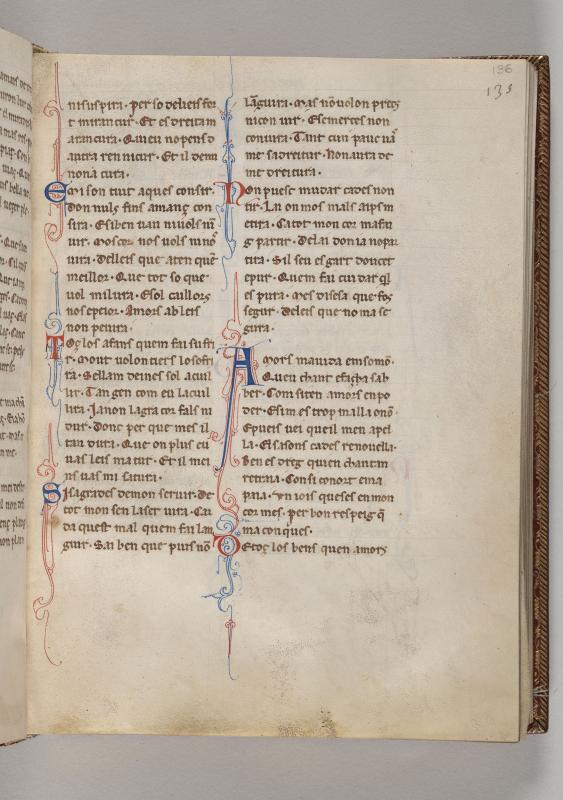 136
135
ni suspira · per so deueis for
t mirancur · Et es dreitam
arancura · Queu no pens d
autra ren nicur · Et il demi
non a cura ·
En son tuit aques consir ·
don nuls fins amanz con
sira · E siben uan
uir · mos cor nos uols
uira · delleis que aten que
meillor · Que tot so que
uol milura · E sol cuillors
nos · Amors ab leis
non peiura ·
Toz los afans quem fai sufri
r · mout uolontiers lo sofri
ra · Sellam deines sol acuil
lir · Tan gen com eu la cuil
lira · Ja non lagra cor fals ni
dur · donc per que mes il
tan dura · Que on plus eu
uas leis matur · Et il mei
ns uas mi satura ·
Sis agrades de mon seruir · de
tot mon sen laser uira · Ca
da quest mal quem fai lan
guir · Sai ben que puis nō
languira · Mas nō uolon precs
nicon uir · E si merces non
conuira · Tant cun pauc uas
me sadreitur · Non aura de
me dreitura ·
Non puesc mudar cades non
tir · La on mos mals
tira · Ca tot mon cor
g partir · De lai don ia no par
tira · Sil seu esgart doucet
epur · Quem fai cuidar ql
es pura · mes diseia que fos
segur · deleis que no ma se
gura ·
Amors mauida em somō ·
Queu chant e faza sab
ber · Com si ten amors en po
der · E sim es trop malla onō ·
E pueis uei queil men apel
la · El sasons cades renouella ·
Ben es dreg queu chantan
retraia · Con si conort em a
paia · Un iois ques es en mon
cor mes · per bon respeig q
ma conques ·
De toz los bens quen amors